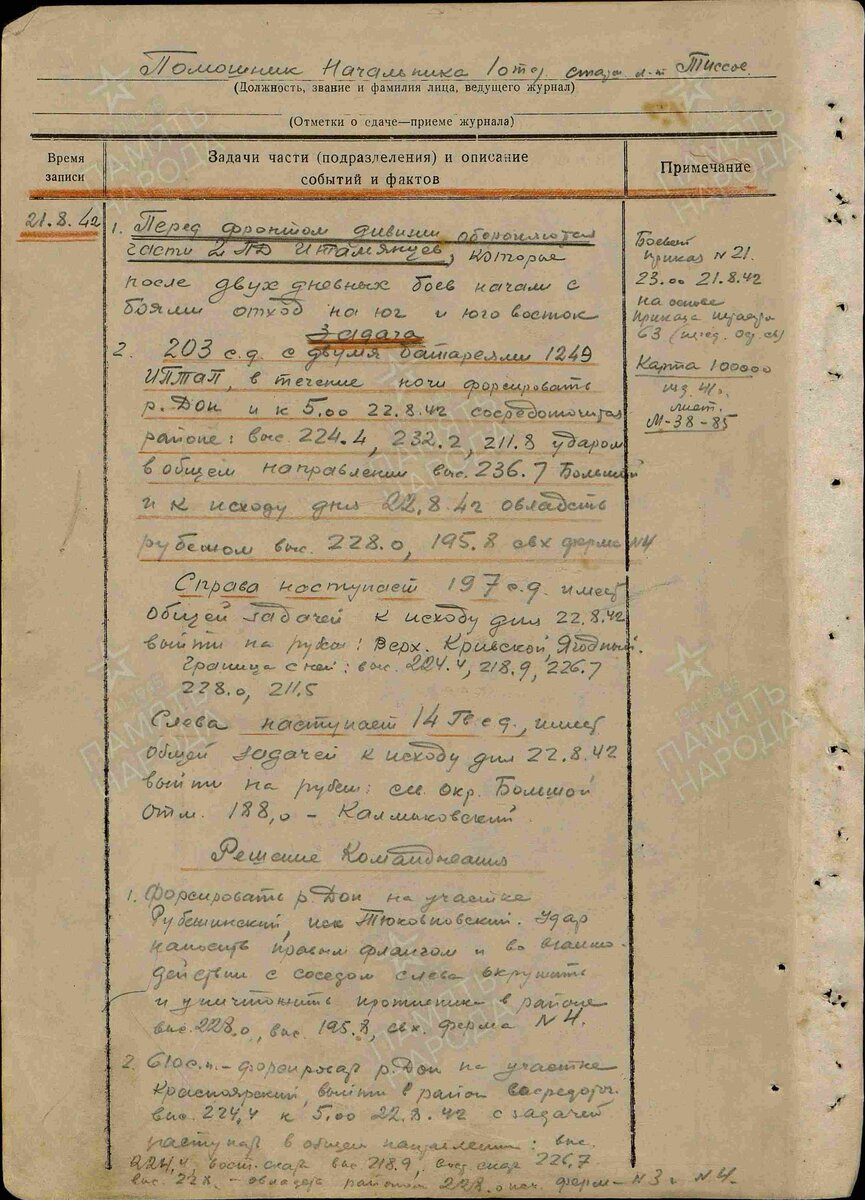 Помошник Начальника 1 отд. штада л-т Тиссос
(Должность, звание и фамилия лица, ведущего журнал)
(Отметки о сдаче—приеме журнала)
Время записи
Задачи части (подразделения) и описание
событий и фактов
Примечание
21.8.42
1. Перед фронтом дивизии обороняются
части 2 ПД Итальянцев, которые
после двух дневных боев начали с
боями отход на юг и юго восток
Задача
2. 203 с.д. с двумя батареями 1249
ИПТАП, в течение ночи форсировать
р. Дон и к 5.00 22.8.42 сосредоточится
районе: выс. 224.4, 232.2, 211.8 ударом
в общем направлении выс. 236.7 Большой
и к исходу дня 22.8.42 овладеть
рубежом выс. 228.0, 195.8 свх ферма №4
Справа наступает 197 с.д. имеет
общей задачей к исходу дня 22.8.42
выйти на рубеж: Верх. Кривской, Ягодный.
Граница с ней: выс. 224.4, 218.9, 226.7
228.0, 211.5
Слева наступает 14 Гв с.д., имеет
общей задачей к исходу дня 22.8.42
выйти на рубеж: сев. окр. Большой
отм. 188,0 - Калмыковский.
Решение Командования
1. Форсировать р. Дон на участке
Рубешинский, иск Тюковновский. Удар
наносить правым флангом и во взаимо-
действии с соседом слева окружить
и уничтожить противника в районе
выс. 228.0, выс. 195.8, свх. ферма №4.
2. 610 с.п. - форсировать р. Дон на участке
Красноярский, выйти в район сосредоточ.
выс. 224,4 к 5.00 22.8.42 с задачей
наступать в общем направлении: выс.
224,4, вост. скаты выс. 218.9, вост скаты 226.7
выс. 228. - овладеть районом 228.0 иск. ферм - №3 и №4.
Боевой
приказ №21.
23.00 21.8.42
на основе
приказа штаарма
63 (перед. од. св)
Карта 100000
изд. 41г.
лист.
М-38-85